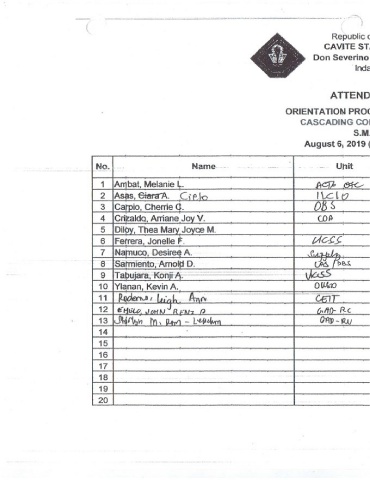 Republic o
CAVITE ST
Don Severino
Inda
ATTEND
ORIENTATION PROG
CASCADING CO
S.M.
August 6, 2019 (
No. Name Unit
1 Ambat, Melanie L.
2 Asas, Ciara A. Cielo
3 Carpio, Cherrie G. OBS
4 Crizaldo, Arriane Joy V. CDA
5 Diloy, Thea Mary Joyce M.
6 Ferrera, Jonelle F. UCSS
7 Namuco, Desiree A. Supply
8 Sarmiento, Arnold D.
9 Tabujara, Konji A. UCSS
10 Ylanan, Kevin A.
11 Leigh Ann CEIT
12 JOHN RENZ GAD-RC
13 M. Rom GAD-RU
14
15
16
17
18
19
20